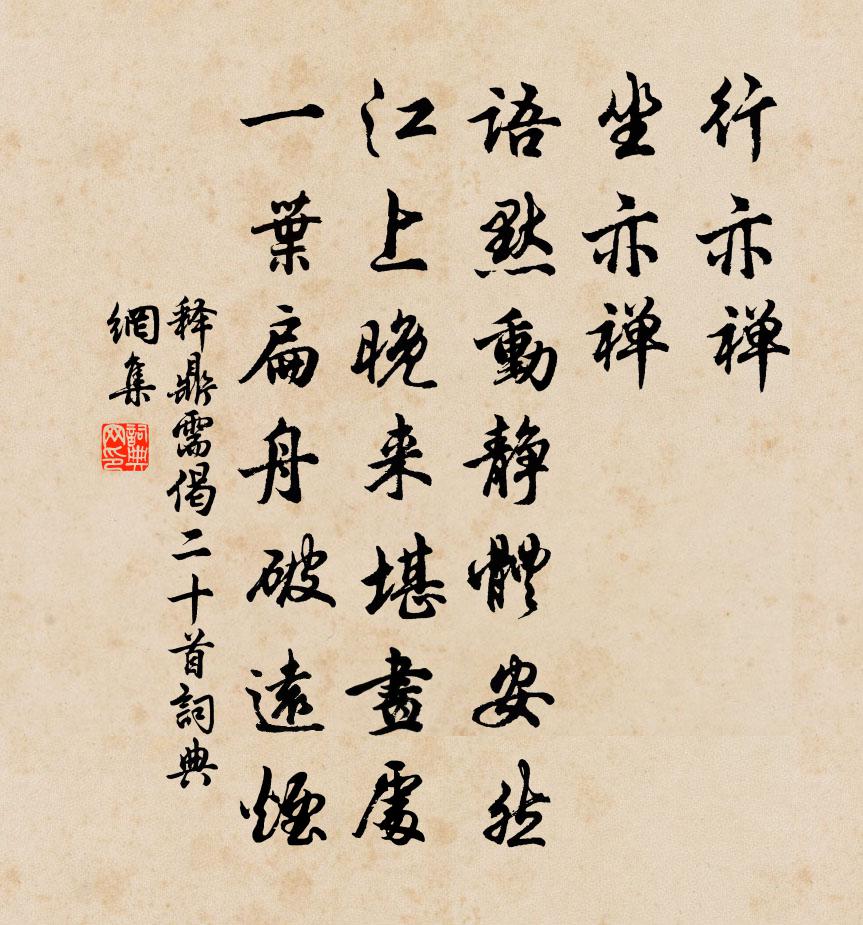 行亦禅
坐亦禅
語默動静體安然
江上晚来堪畫處
一葉扁舟破遠煙
释鼎需偈二十首詞典
網集
詞典
网印